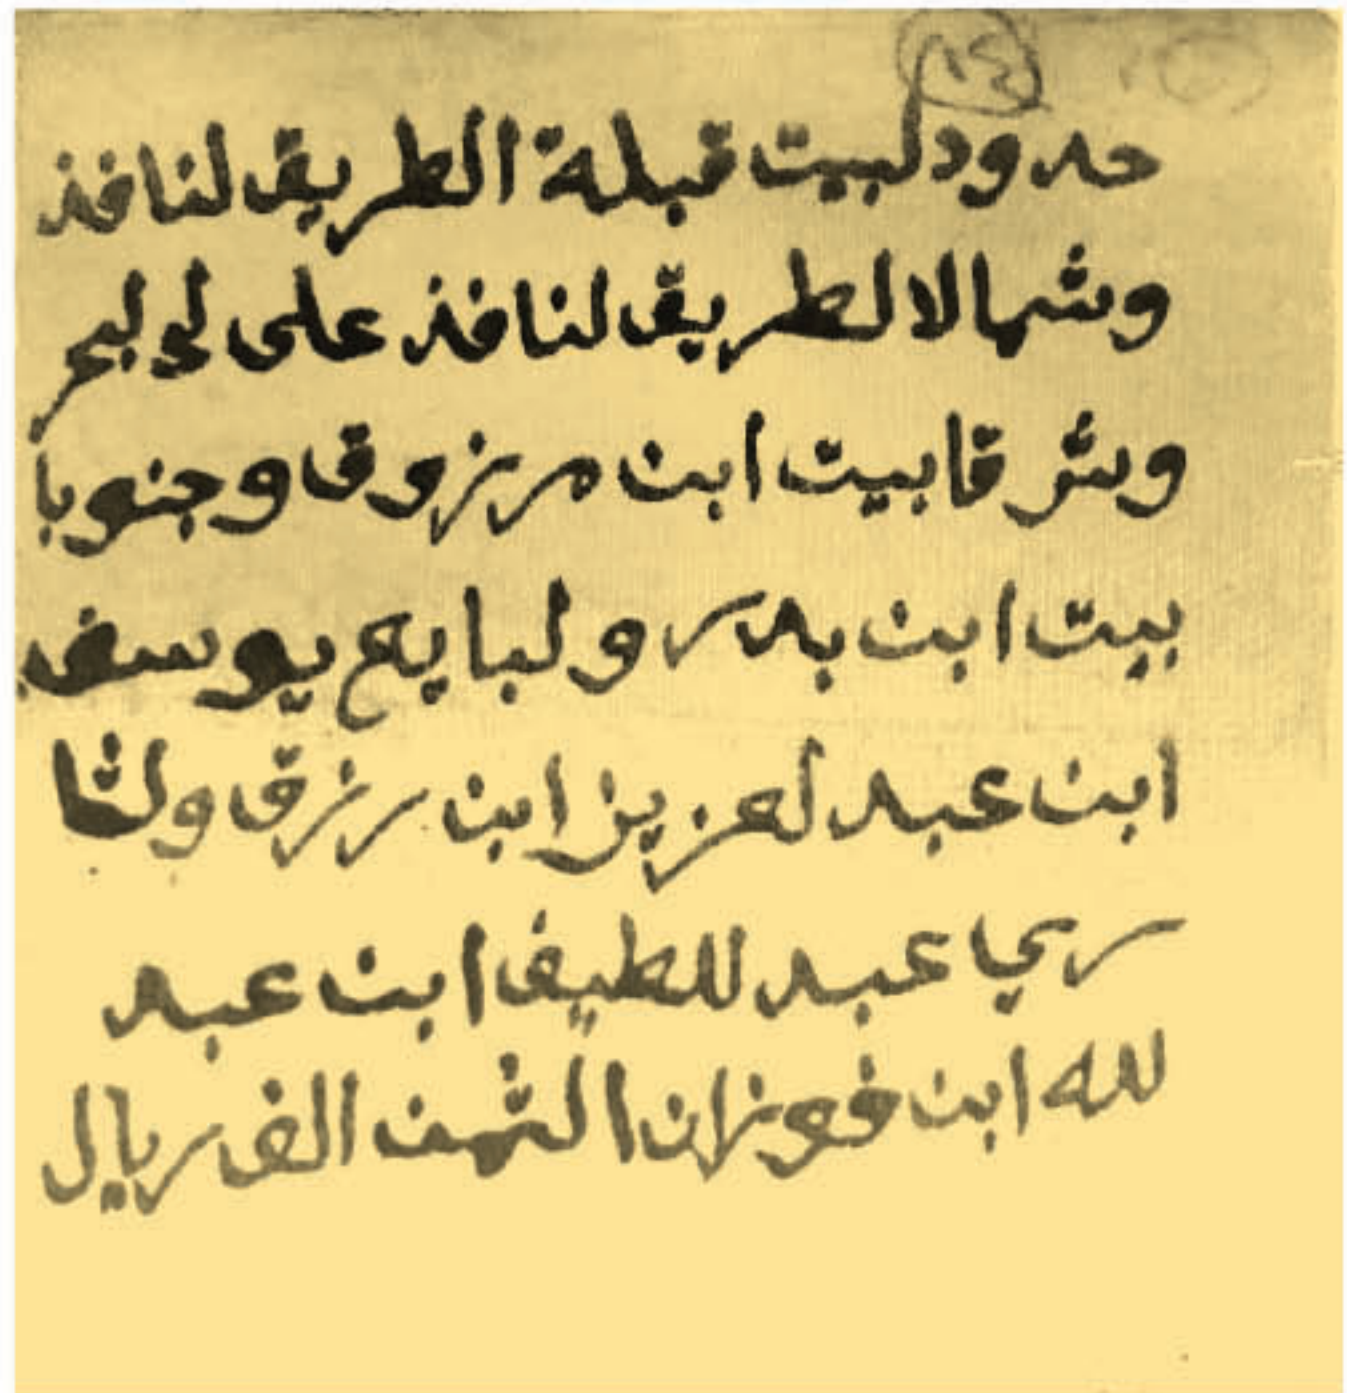 حدود لبيت قبلة الطريق لنافذ
وشمالا لطريق لنافذ على لبحر
وشرقا بيت ابن مرزوق وجنوبا
بيت ابن بدر ولبايع يوسف
ابن عبد لعزيز ابن رزق ولشا
ري عبد للطيف ابن عبد
لله ابن فوزان الثمن الف ريال